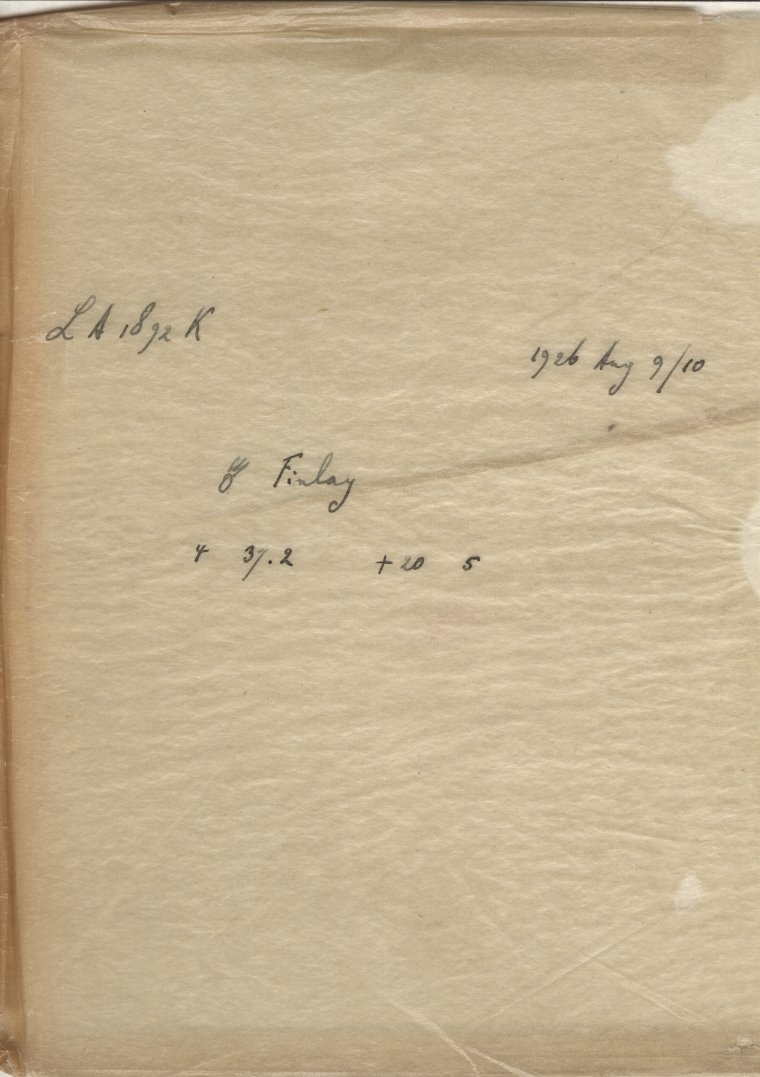 LA 1892 K
1926 Aug 9/10
☄ Finlay
4 37.2 +20 5